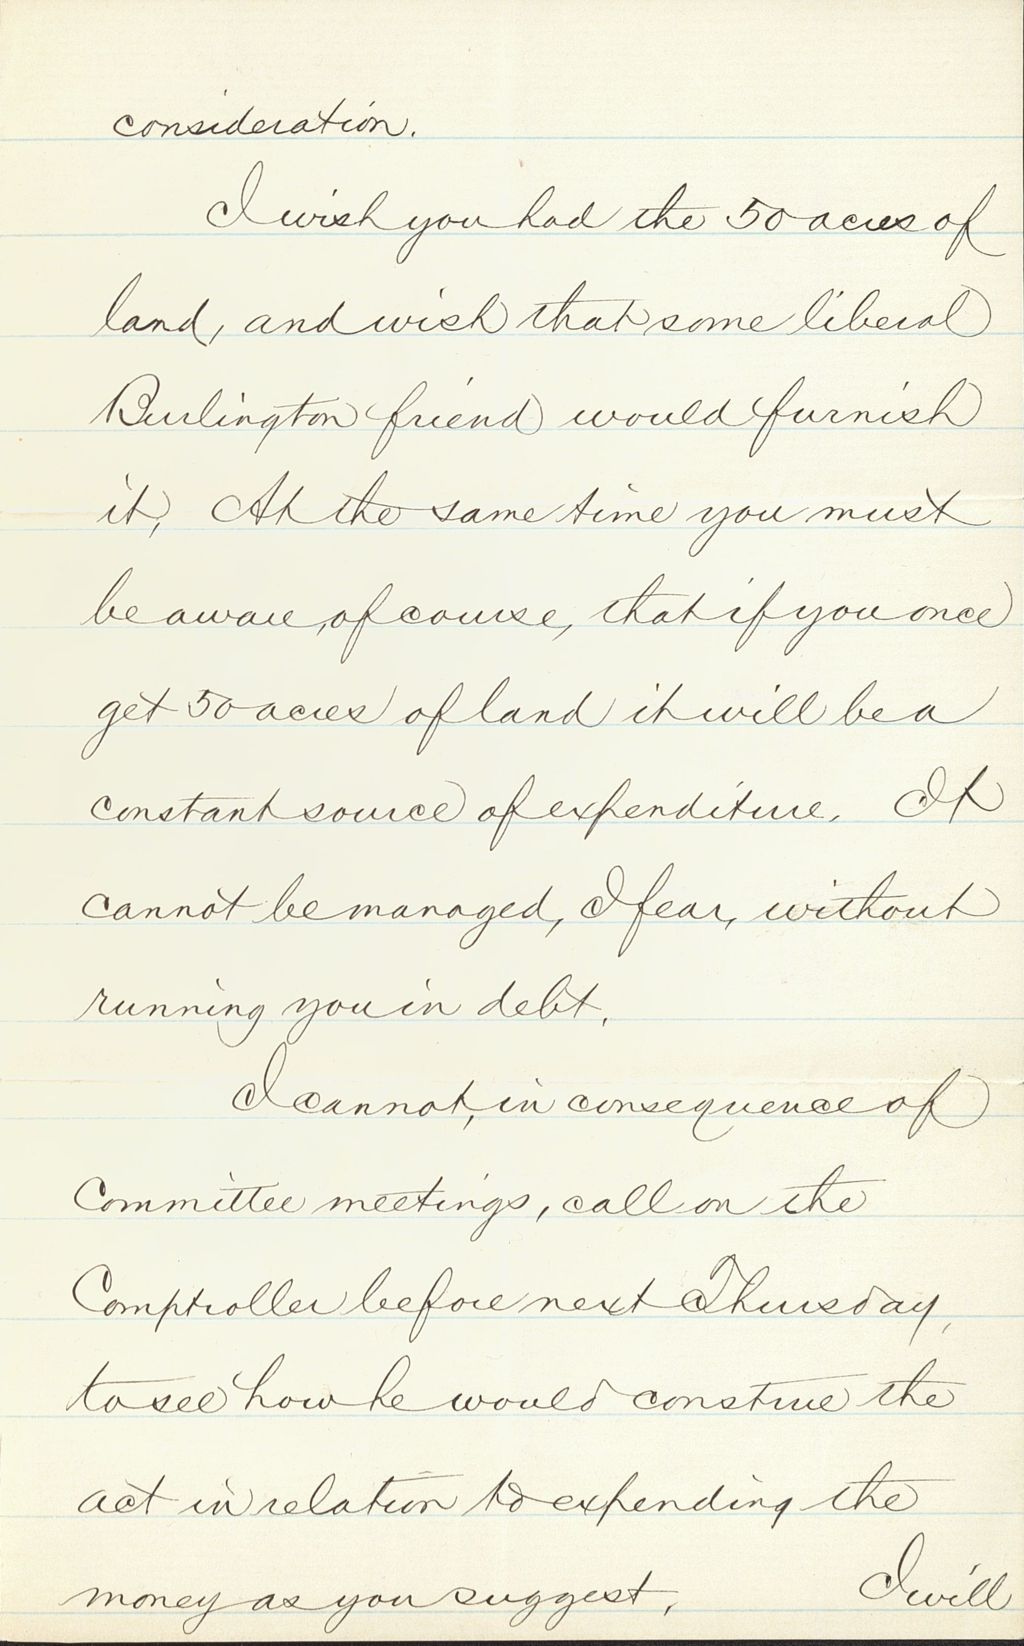 consideration.
I wish you had the 50 acres of
land, and wish that some liberal
Burlington friend would furnish
it, At the same time you must
be aware, of course, that if you once
get 50 acres of land it will be a
constant source of expenditure. It
cannot be managed, I fear, without
running you in debt.
I cannot, in consequence of
Committee meetings, call on the
Comptroller before next Thursday,
to see how he would construe the
act in relation to expending the
money as you suggest. I will